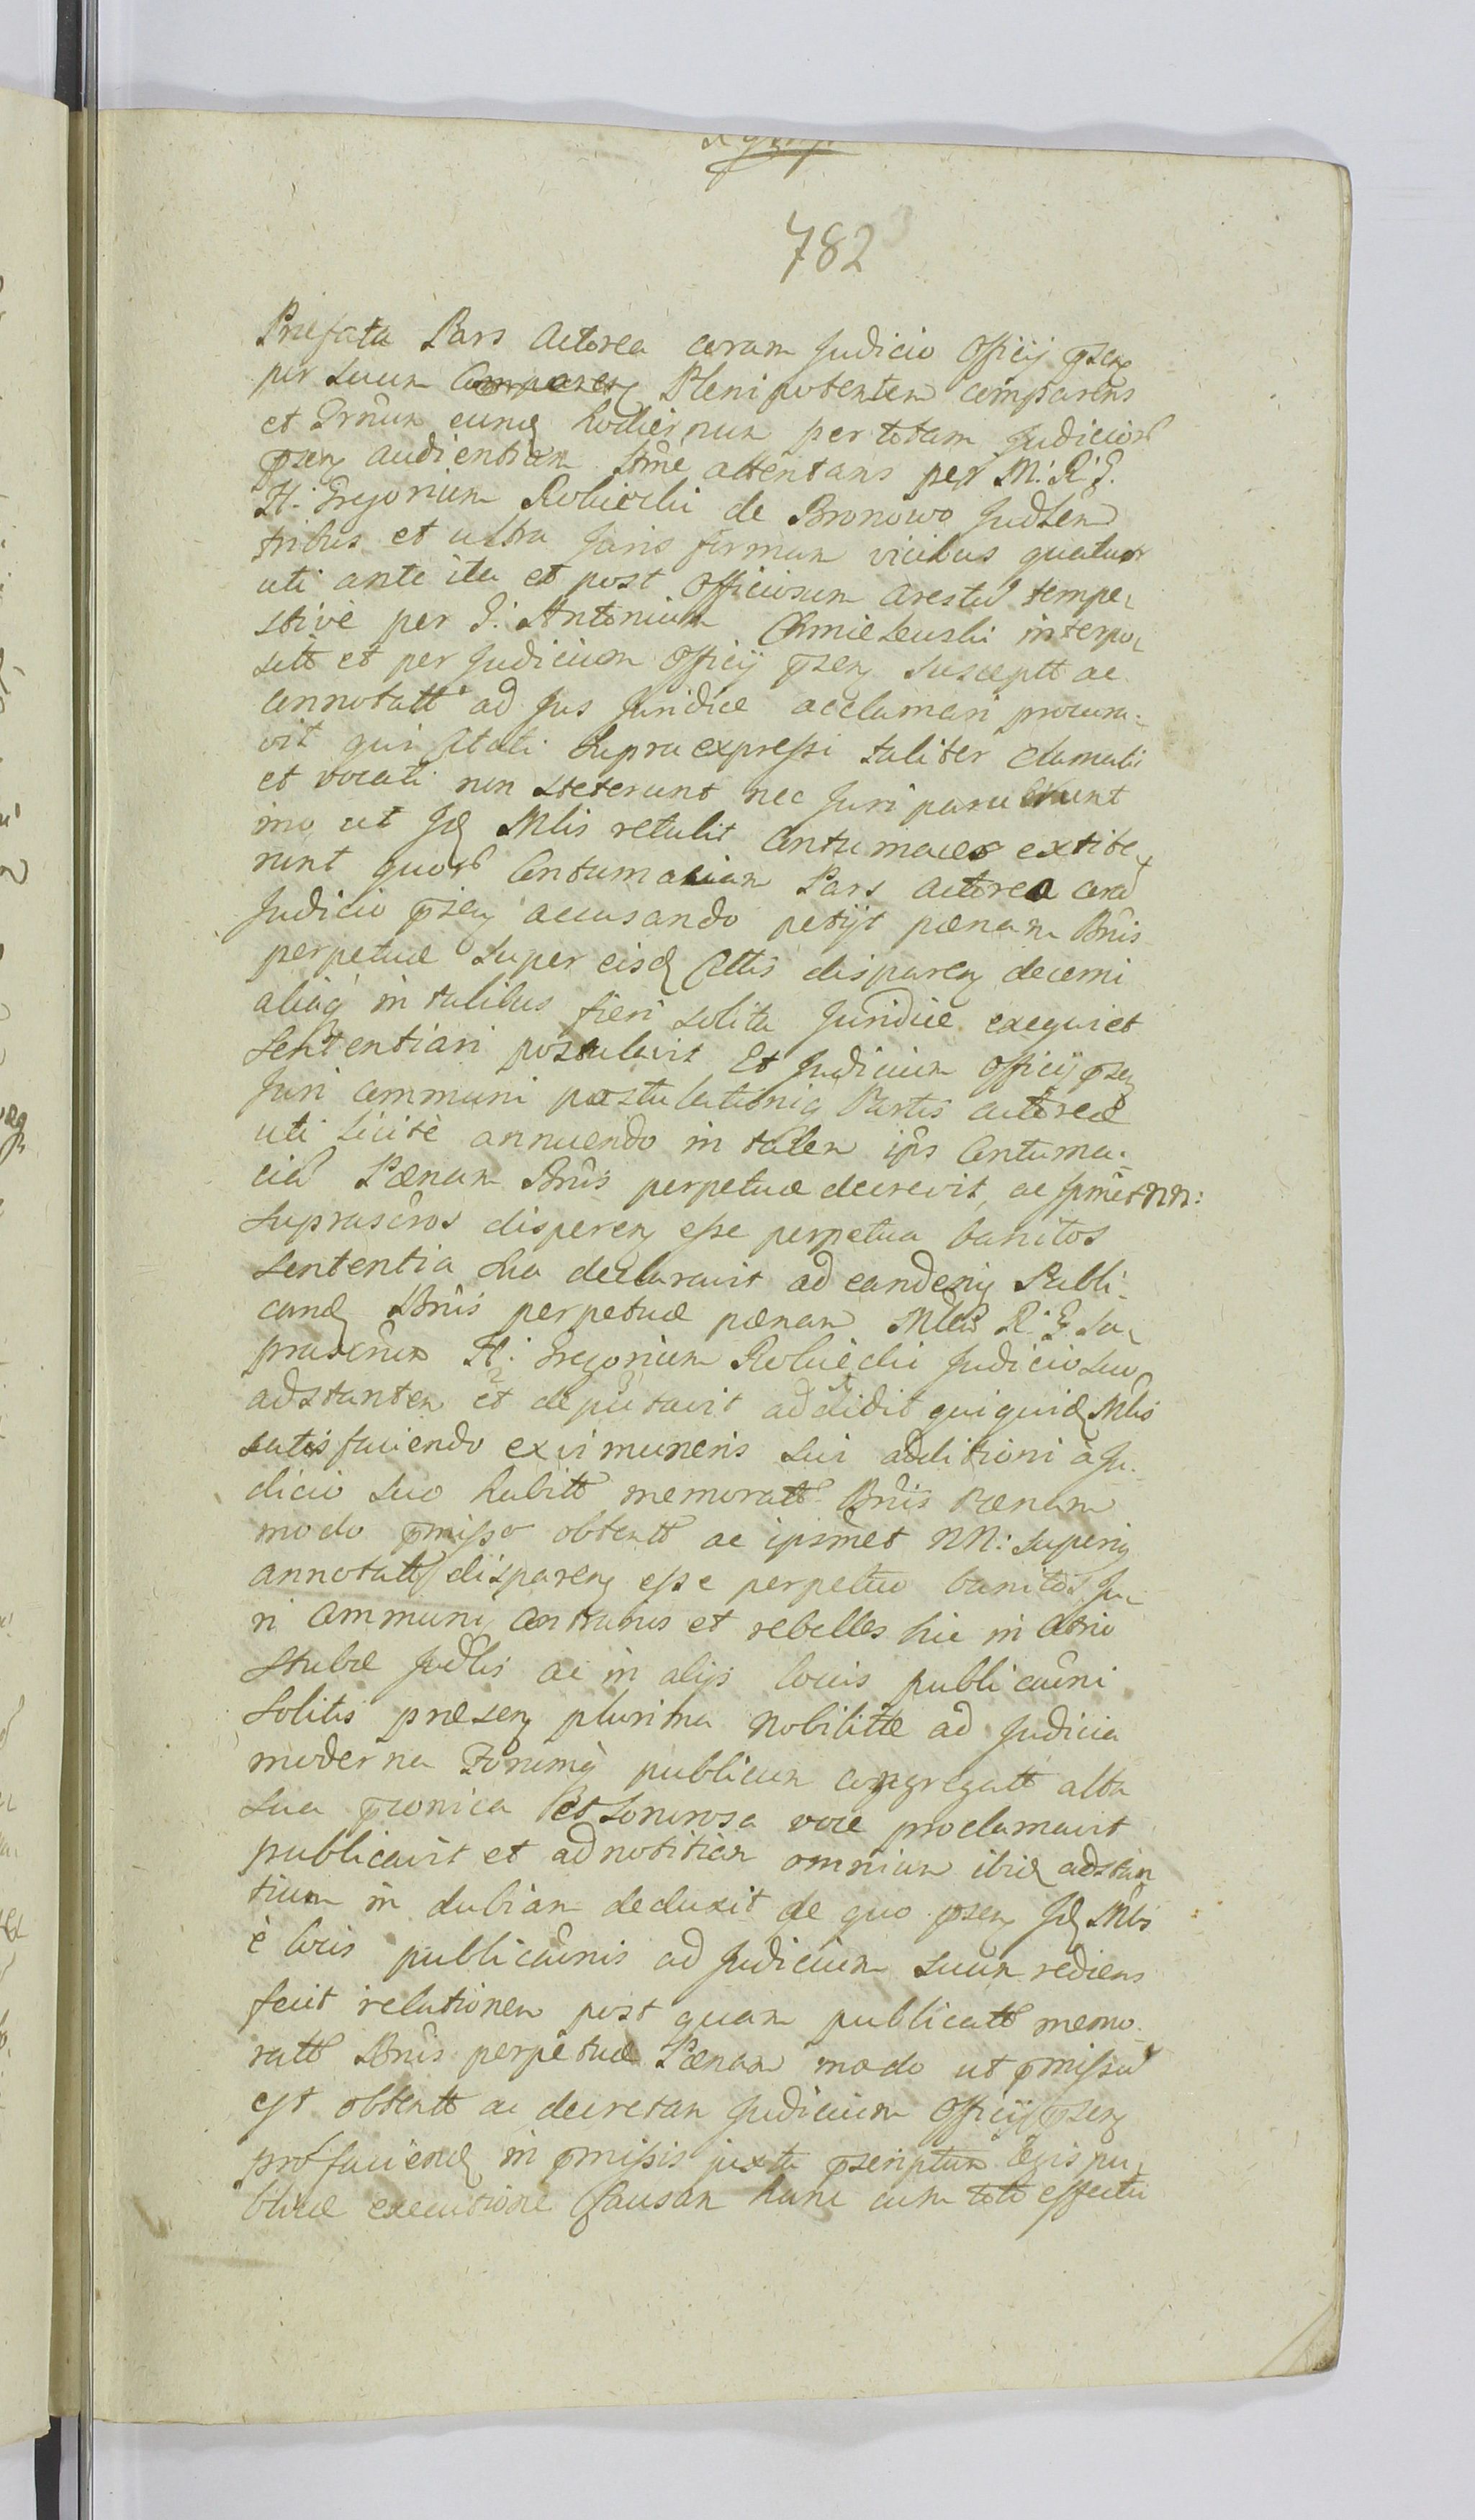 782
Præfata Pars Actorea coram Judicio Officij pseng
per suum Comparens Plenipotentem comparens
et Trnum eunq hodiernum per totam Judicior
pseng audientiam Stme attentans per M: R: G:
H: Gregorium Robiecki de Bronowo Judlem
tribus et ultra Juris firmam vicibus quatuor
uti ante ita et post Officiosum Arestum tempe-
stivè per G: Antonium Chmielewski interpo-
sitt et per Judicium Officij pseng susceptt ac
connotatt ad Jus Juridice acclamari procura-
vit qui Citati supra expressi taliter clamati
et vocati non steterunt nec Juri paruerunt
imo ut Jd Mlis retulit Contumaces extite-
runt quor Contumaciam Pars Actorea cora
Judicio pseng accusando petijt pænam Bnis
perpetuæ super eisd Cttis dispareng decerni
aliaq in talibus fieri solita Juridice exequi et
Sententiari postulavit Et Judicium Officij pseng
Juri communi postulationiq Partis Actoreæ
uti licitè annuendo in talem ips Contuma-
ciam Pænam Bnis perpetuæ decrevit, ac Ipsmet NN:
suprascros dispareng esse perpetua banitos
sententia sua declaravit ad eandemq Publi-
cand Bnis perpetuæ pænam Mlem R: G: su-
prascrum H: Gregorium Robiecki Judicio suo
adstantem et deputavit addidit qui quid Mlis
satisfaciendo ex vi muneris sui additioni à Ju-
dicio suo habitt memoratt Bnis Pænam
modo pmisso obtentt ac ipsmet NN: superiq
annotatt dispareng esse perpetuo banitos Ju-
ri Communi contrarios et rebelles hic in Atrio
Stubæ Judlis ac in alijs locis publicauni
solitis præseng plurima Nobilitte ad Judicia
moderna Forumq publicum congregatt alta
sua pconica et sonorosa voce proclamavit
publicavit et ad notitiam omnium ibid adstan
tium in dubiam deduxit de quo pseng Jd Mlis
è locis publicaunis ad Judicium suum rediens
fecit relationem post quam publicatt memo-
ratt Bnis perpetuæ Pænam modo ut pmissum
est obtentt ac decretam Judicium Officij pseng
pro faciend in pmissis juxta pscriptum legis pu-
blicæ executione Causam hanc cum toto effectu